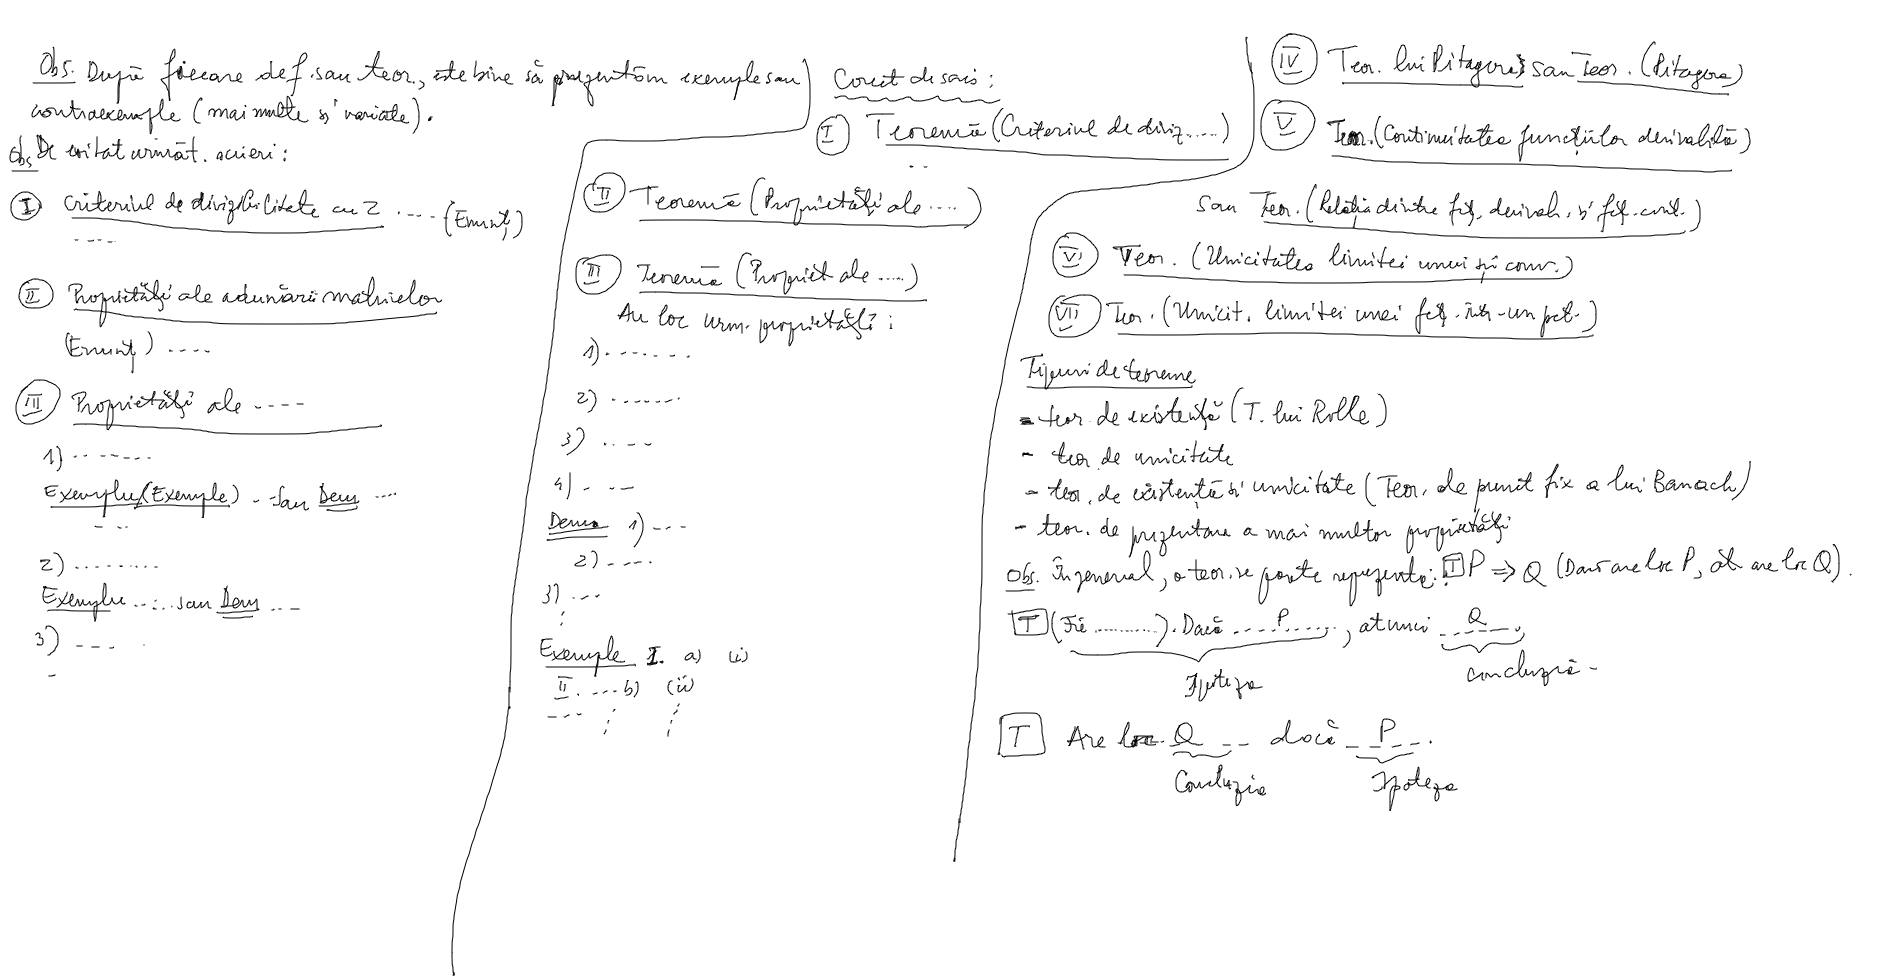 Obs. După fiecare def. sau teor., este bine să prezentăm exemple sau
contraexemple (mai multe și variate).
Obs De evitat următ. scrieri:
I Criteriul de divizibilitate cu 2 .... (Enunț)
....
II Proprietăți ale adunării matricelor
(Enunț) ....
III Proprietăți ale ....
1) .......
Exemplu (Exemple) .. sau Dem ....
...
2) .........
Exemplu ..... sau Dem ...
3) ....
Corect de scris:
I Teoremă (Criteriul de diviz.....)
..
II Teoremă (Proprietăți ale ....)
III Teoremă (Propriet ale .....)
Au loc urm. proprietăți:
1) .......
2) .......
3) .....
4) ....
Dem 1) ...
2) ....
3) ...
Exemple I. a) (i)
II. .... b) (ii)
....
IV Teor. lui Pitagora sau Teor. (Pitagora)
V Teor. (Continuitatea funcțiilor derivabilă)
sau Teor. (Relația dintre fcț. derivab. și fcț. cont.)
VI Teor. (Unicitatea limitei unui șir conv.)
VII Teor. (Unicit. limitei unei fcț. într-un pct.)
Tipuri de teoreme
- teor. de existență (T. lui Rolle)
- teor de unicitate
- teor. de existență și unicitate (Teor. de punct fix a lui Banach)
- teor. de prezentare a mai multor proprietăți
Obs. În general, o teor. se poate reprezenta: T P ⇒ Q (Dacă are loc P, at. are loc Q).
T (Fie ..........). Dacă .... P ...., atunci .. Q ...
Ipoteza concluzia
T Are loc Q .. dacă .. P ....
Concluzia Ipoteza